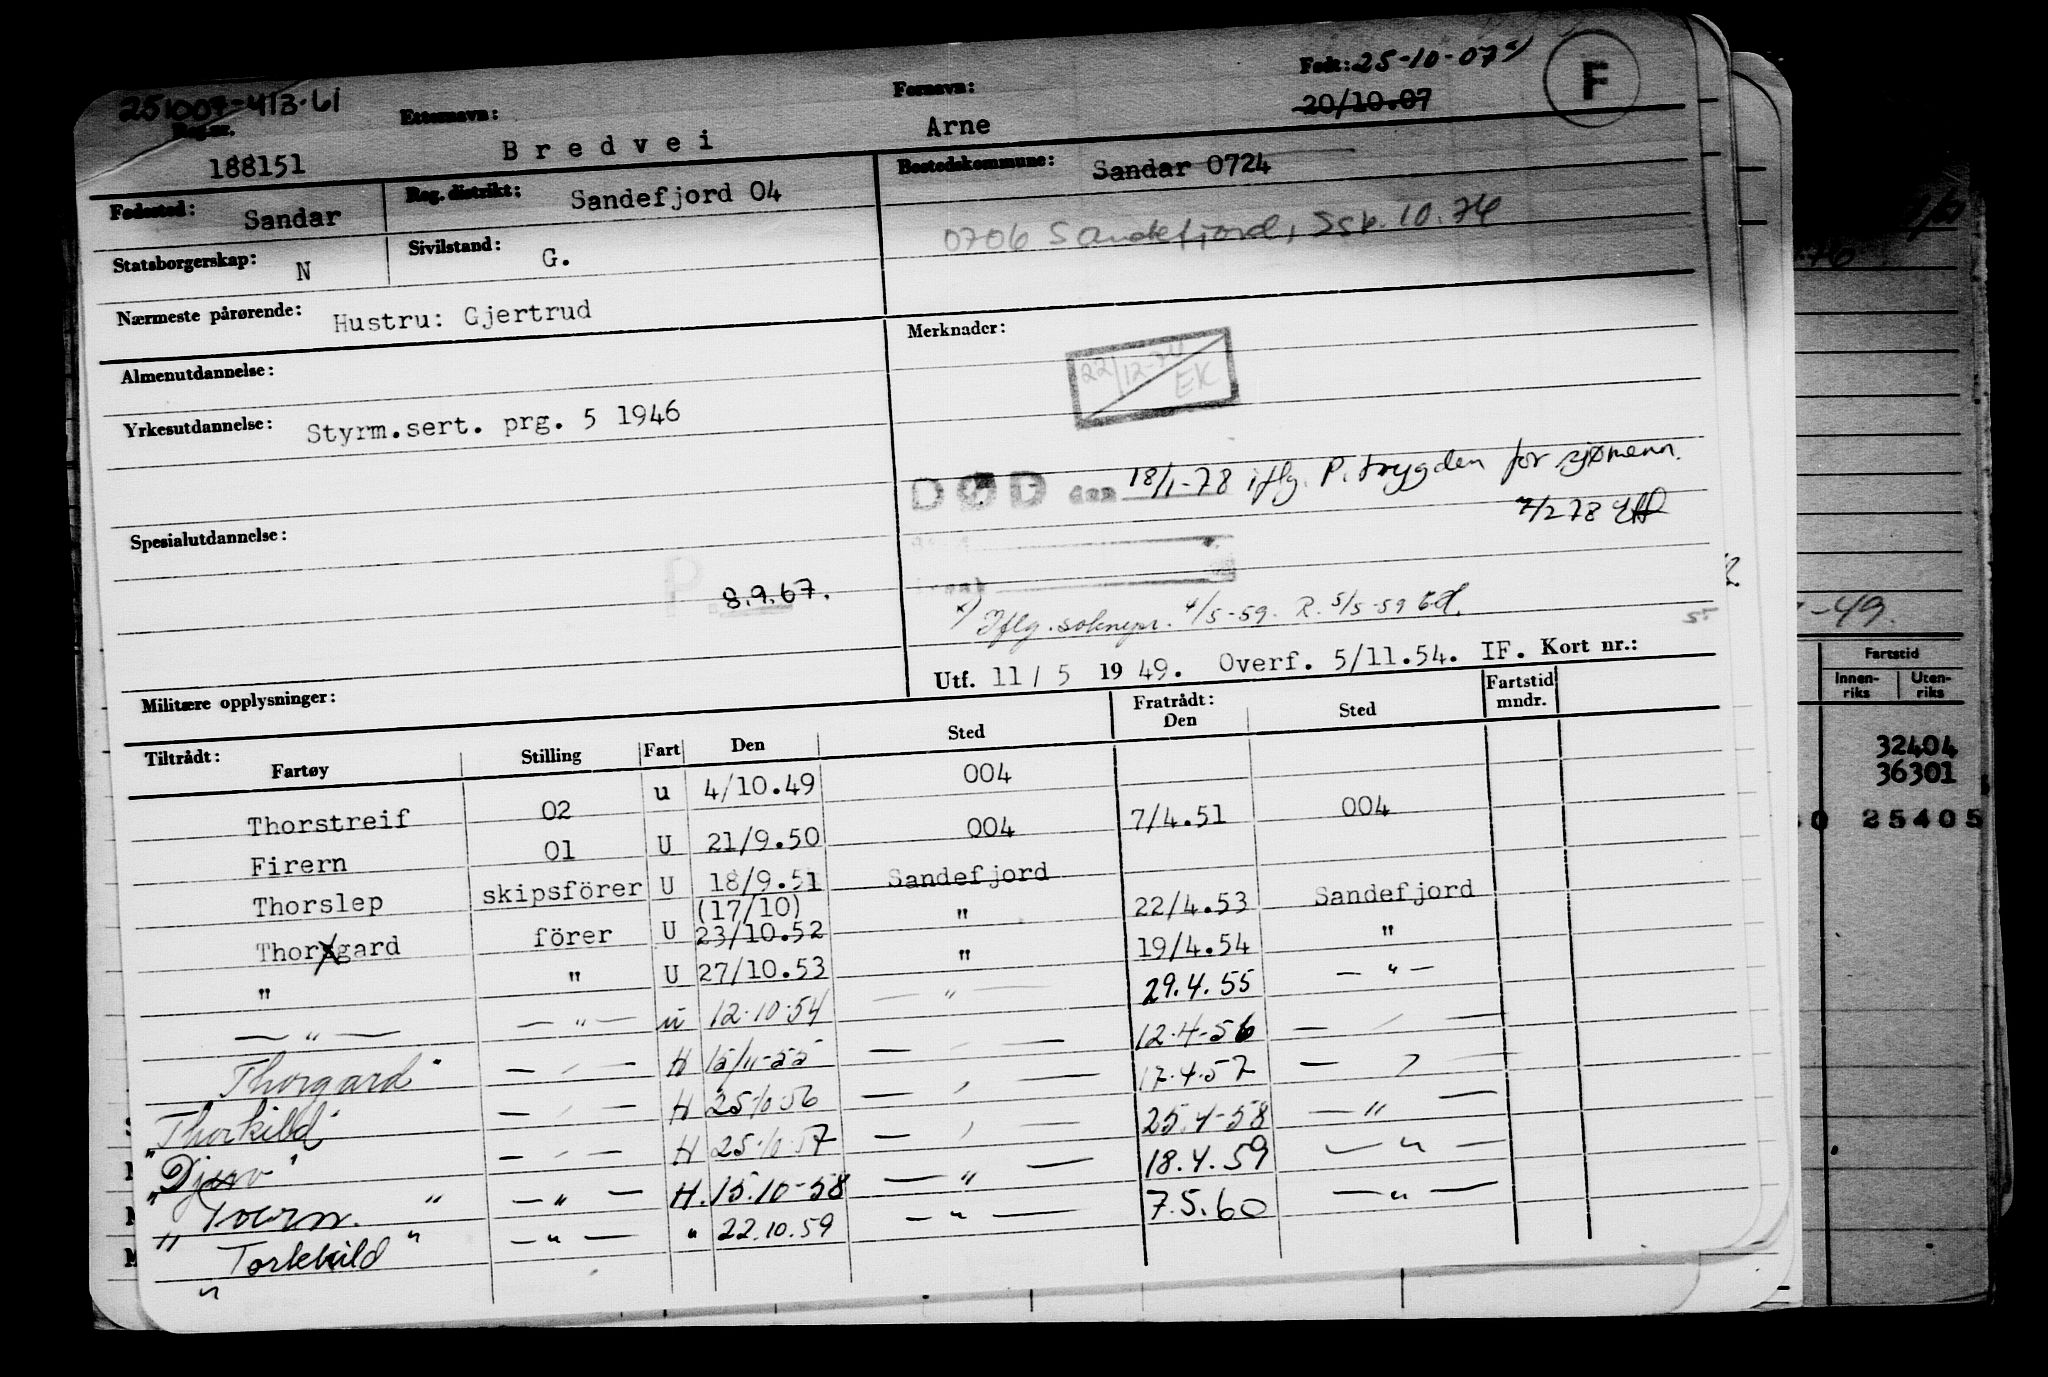 251007-413-61
Reg.nr.
188151
Etternavn:
Bredvei
Fornavn:
Arne
Født: 25-10-07 x)
20/10.07
F
Fødested:
Sandar
Reg. distrikt:
Sandefjord 04
Bostedskommune:
Sandar 0724
0706 Sandefjord, Ssk. 10.74
Statsborgerskap:
N
Sivilstand:
G.
Nærmeste pårørende:
Hustru: Gjertrud
Almenutdannelse:
Yrkesutdannelse:
Styrm.sert. prg. 5 1946
Spesialutdannelse:
P.
8.9.67.
Militære opplysninger:
Merknader:
22/12-70
EK
DØD den 18/1-78 iflg. P.trygden for sjømenn.
7/2 78
x) Iflg. soknepr. 4/5-59. R. 5/5-59
55
Utf. 11/5 1949. Overf. 5/11.54. IF. Kort nr.:
Tiltrådt:
Fartøy Stilling Fart Den Sted
Fratrådt:
Den Sted
Fartstid
mndr.
Thorstreif 02 u 4/10.49 004
Firern 01 U 21/9.50 004 7/4.51 004
Thorslep skipsförer U 18/9.51 Sandefjord
(17/10)
Thorgard förer U 23/10.52 " 22/4.53 Sandefjord
" " U 27/10.53 " 19/4.54 "
— " — — " — u 12.10.54 — " — 29.4.55 — " —
Thorgard — " — H 15/11-55 — " — 12.4-56 — " —
"Thorkild" — " — H 25-10-56 — " — 17.4.57 — " —
"Djerv" — " — H 25-10-57 — " — 25.4-58 — " —
" Toern. " — " — H. 15.10-58 — " — 18.4.59 — " —
" Torkild " — " — " 22.10.59 — " — 7.5.60 — " —
-49.
Fartstid
Innen-
riks
Uten-
riks
32404
36301
0 25405